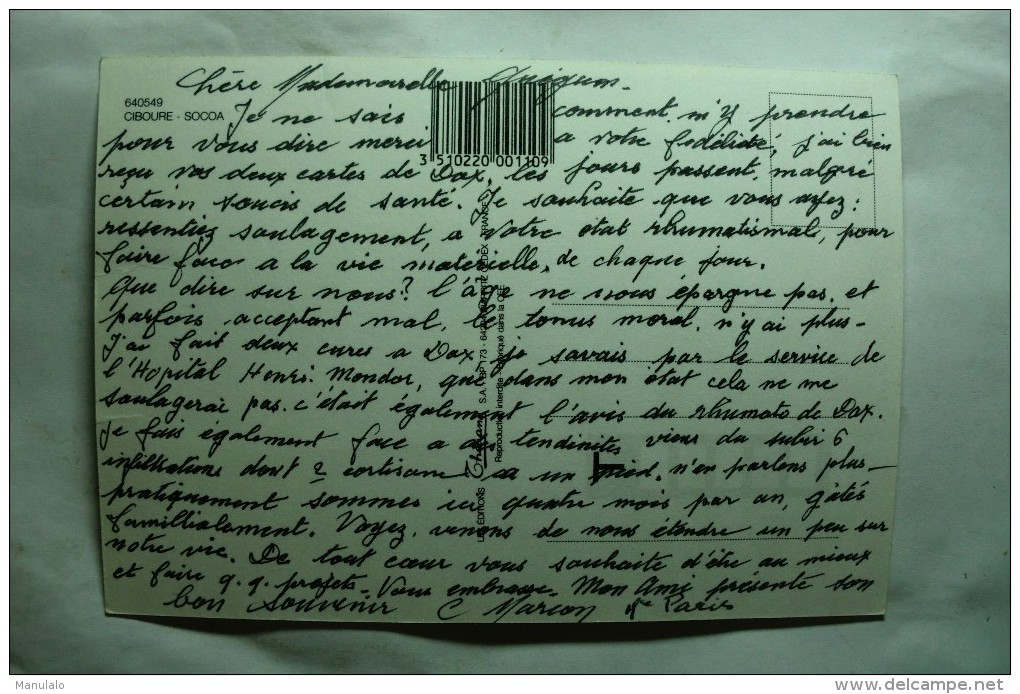 Chère Mademoiselle
640549
CIBOURE - SOCOA
Je ne sais comment m'y prendre
pour vous dire merci a votre fidélidé, j'ai bien
reçu vos deux cartes de Dax, les jours passent, malgré
certain soucis de santé. Je souhaite que vous ayez :
ressentiez soulagement, a votre état rhumatismal, pour
faire face a la vie materielle, de chaque jour.
Que dire sur nous? l'âge ne nous épargne pas, et
parfois acceptant mal, le tonus moral, n'y ai plus -
J'ai fait deux cures a Dax, je savais par le service de
l'Hôpital Henri Mondor, que dans mon état cela ne me
soulagerai pas. c'était également l'avis du rhumato de Dax.
Je fais également face a des tendinites viens du subir 6
infiltrations dont 2 cortisone a un pied. n'en parlons plus -
pratiquement sommes ici quatre mois par an, gâtés
famillialement. Voyez, venons de nous étendre un peu sur
notre vie. De tout cœur vous souhaite d'être au mieux
et faire q.q. projets. Vous embrasse. Mon Ami présente son
bon souvenir C Marcon Paris
3 510220 001109
LES ÉDITIONS S.A. - BP 173 - 64 CEDEX FRANCE
Reproduction interdite - Fabriqué dans la CEE
Manulalo
delcampe.net